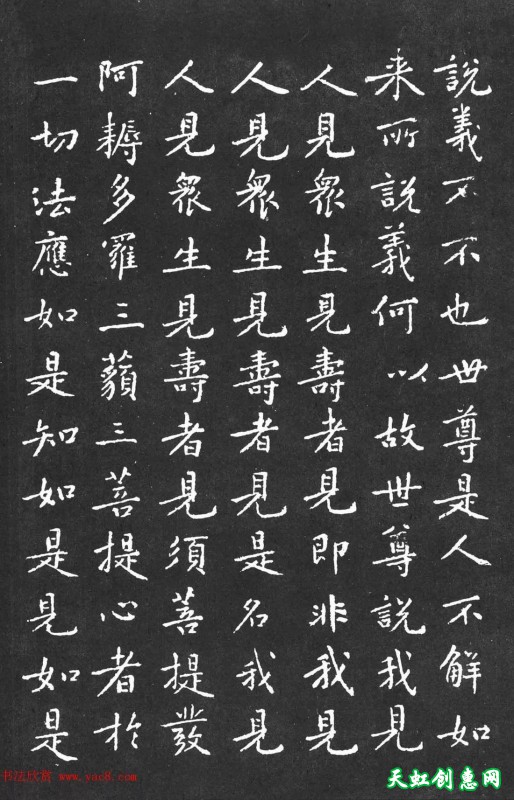 說義不不也世尊是人不解如
来所說義何以故世尊說我見
人見眾生見壽者見即非我見
人見眾生見壽者見是名我見
人見眾生見壽者見須菩提發
阿耨多羅三藐三菩提心者於
一切法應如是知如是見如是
书法欣赏 www.yac8.com
天虹创惠网